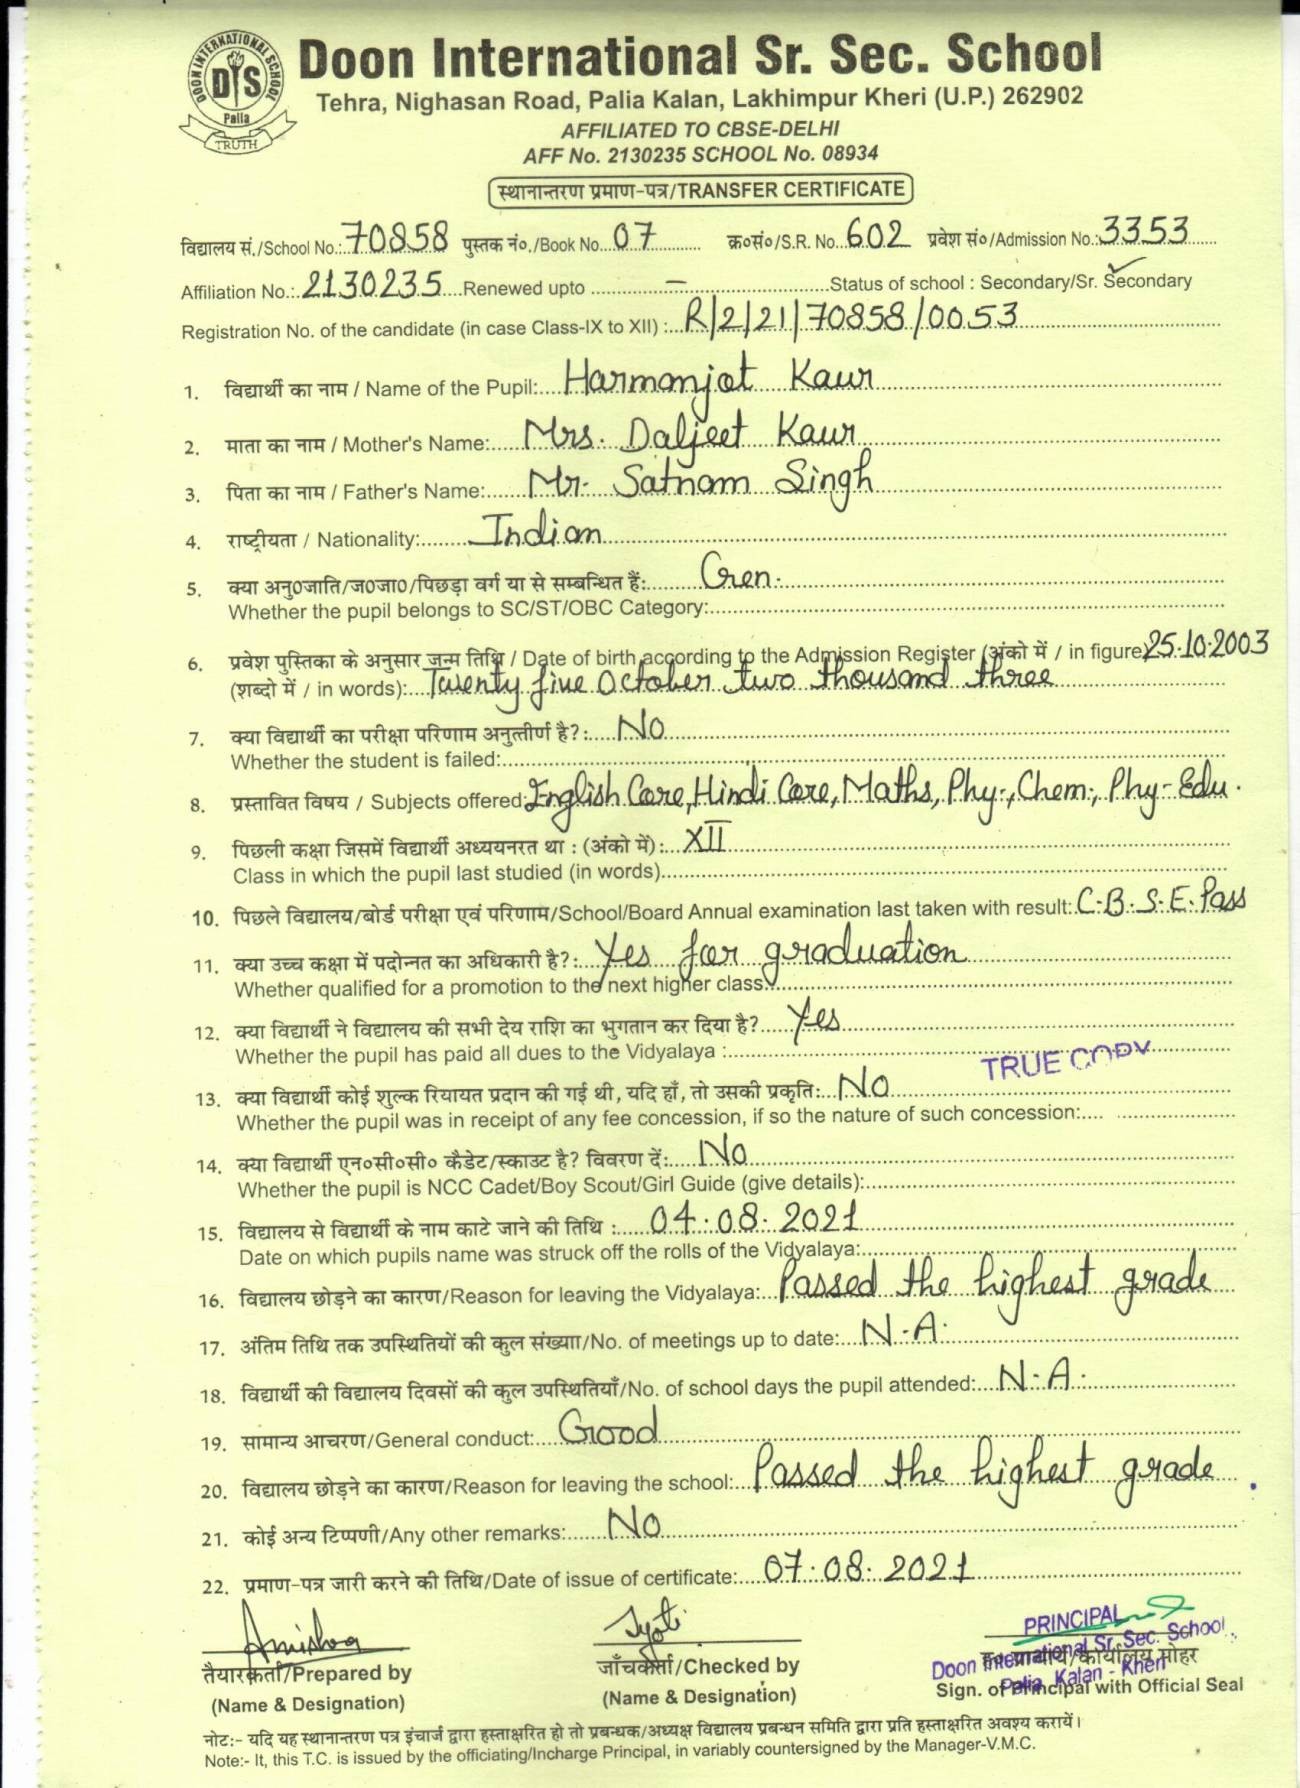 DOON INTERNATIONAL SCHOOL
DIS
Palia
TRUTH
Doon International Sr. Sec. School
Tehra, Nighasan Road, Palia Kalan, Lakhimpur Kheri (U.P.) 262902
AFFILIATED TO CBSE-DELHI
AFF No. 2130235 SCHOOL No. 08934
स्थानान्तरण प्रमाण-पत्र/TRANSFER CERTIFICATE
विद्यालय सं./School No.: 70858 पुस्तक नं०./Book No. 07 क्र०सं०/S.R. No. 602 प्रवेश सं०/Admission No.: 3353
Affiliation No.: 2130235 Renewed upto – Status of school : Secondary/Sr. Secondary
Registration No. of the candidate (in case Class-IX to XII) : R/2/21/70858/0053
1. विद्यार्थी का नाम / Name of the Pupil: Harmanjot Kaur
2. माता का नाम / Mother's Name: Mrs. Daljeet Kaur
3. पिता का नाम / Father's Name: Mr. Satnam Singh
4. राष्ट्रीयता / Nationality: Indian
5. क्या अनु०जाति/ज०जा०/पिछड़ा वर्ग या से सम्बन्धित हैं: Gen.
Whether the pupil belongs to SC/ST/OBC Category:
6. प्रवेश पुस्तिका के अनुसार जन्म तिथि / Date of birth according to the Admission Register (अंको में / in figure) 25.10.2003
(शब्दो में / in words): Twenty five October two thousand three
7. क्या विद्यार्थी का परीक्षा परिणाम अनुत्तीर्ण है?: No
Whether the student is failed:
8. प्रस्तावित विषय / Subjects offered: English Core, Hindi Core, Maths, Phy., Chem., Phy-Edu.
9. पिछली कक्षा जिसमें विद्यार्थी अध्ययनरत था : (अंको में): XII
Class in which the pupil last studied (in words)
10. पिछले विद्यालय/बोर्ड परीक्षा एवं परिणाम/School/Board Annual examination last taken with result: C.B.S.E. Pass
11. क्या उच्च कक्षा में पदोन्नत का अधिकारी है?: Yes for graduation
Whether qualified for a promotion to the next higher class:
12. क्या विद्यार्थी ने विद्यालय की सभी देय राशि का भुगतान कर दिया है? Yes
Whether the pupil has paid all dues to the Vidyalaya :
TRUE COPY
13. क्या विद्यार्थी कोई शुल्क रियायत प्रदान की गई थी, यदि हाँ, तो उसकी प्रकृति: No
Whether the pupil was in receipt of any fee concession, if so the nature of such concession:
14. क्या विद्यार्थी एन०सी०सी० कैडेट/स्काउट है? विवरण दें: No
Whether the pupil is NCC Cadet/Boy Scout/Girl Guide (give details):
15. विद्यालय से विद्यार्थी के नाम काटे जाने की तिथि : 04.08.2021
Date on which pupils name was struck off the rolls of the Vidyalaya:
16. विद्यालय छोड़ने का कारण/Reason for leaving the Vidyalaya: Passed the highest grade
17. अंतिम तिथि तक उपस्थितियों की कुल संख्याा/No. of meetings up to date: N.A.
18. विद्यार्थी की विद्यालय दिवसों की कुल उपस्थितियाँ/No. of school days the pupil attended: N.A.
19. सामान्य आचरण/General conduct: Good
20. विद्यालय छोड़ने का कारण/Reason for leaving the school: Passed the highest grade
21. कोई अन्य टिप्पणी/Any other remarks: No
22. प्रमाण-पत्र जारी करने की तिथि/Date of issue of certificate: 07.08.2021
Jyoti
PRINCIPAL
Doon International Sr. Sec. School
Palia Kalan - Kheri
तैयारकर्ता/Prepared by जाँचकर्ता/Checked by ह० प्राचार्य/कार्यालय मोहर
(Name & Designation) (Name & Designation) Sign. of Principal with Official Seal
नोट:- यदि यह स्थानान्तरण पत्र इंचार्ज द्वारा हस्ताक्षरित हो तो प्रबन्धक/अध्यक्ष विद्यालय प्रबन्धन समिति द्वारा प्रति हस्ताक्षरित अवश्य करायें।
Note:- It, this T.C. is issued by the officiating/Incharge Principal, in variably countersigned by the Manager-V.M.C.